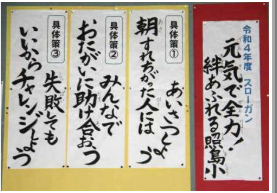 令和4年度 スローガン
元気で全力!
絆あふれる照島小
具体策①
朝すれちがった人には
あいさつしよう
具体策②
みんなで
おたがいに助け合おう
具体策③
失敗しても
いいからチャレンジしよう